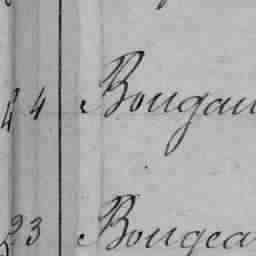 44 Bougau
23 Bougea